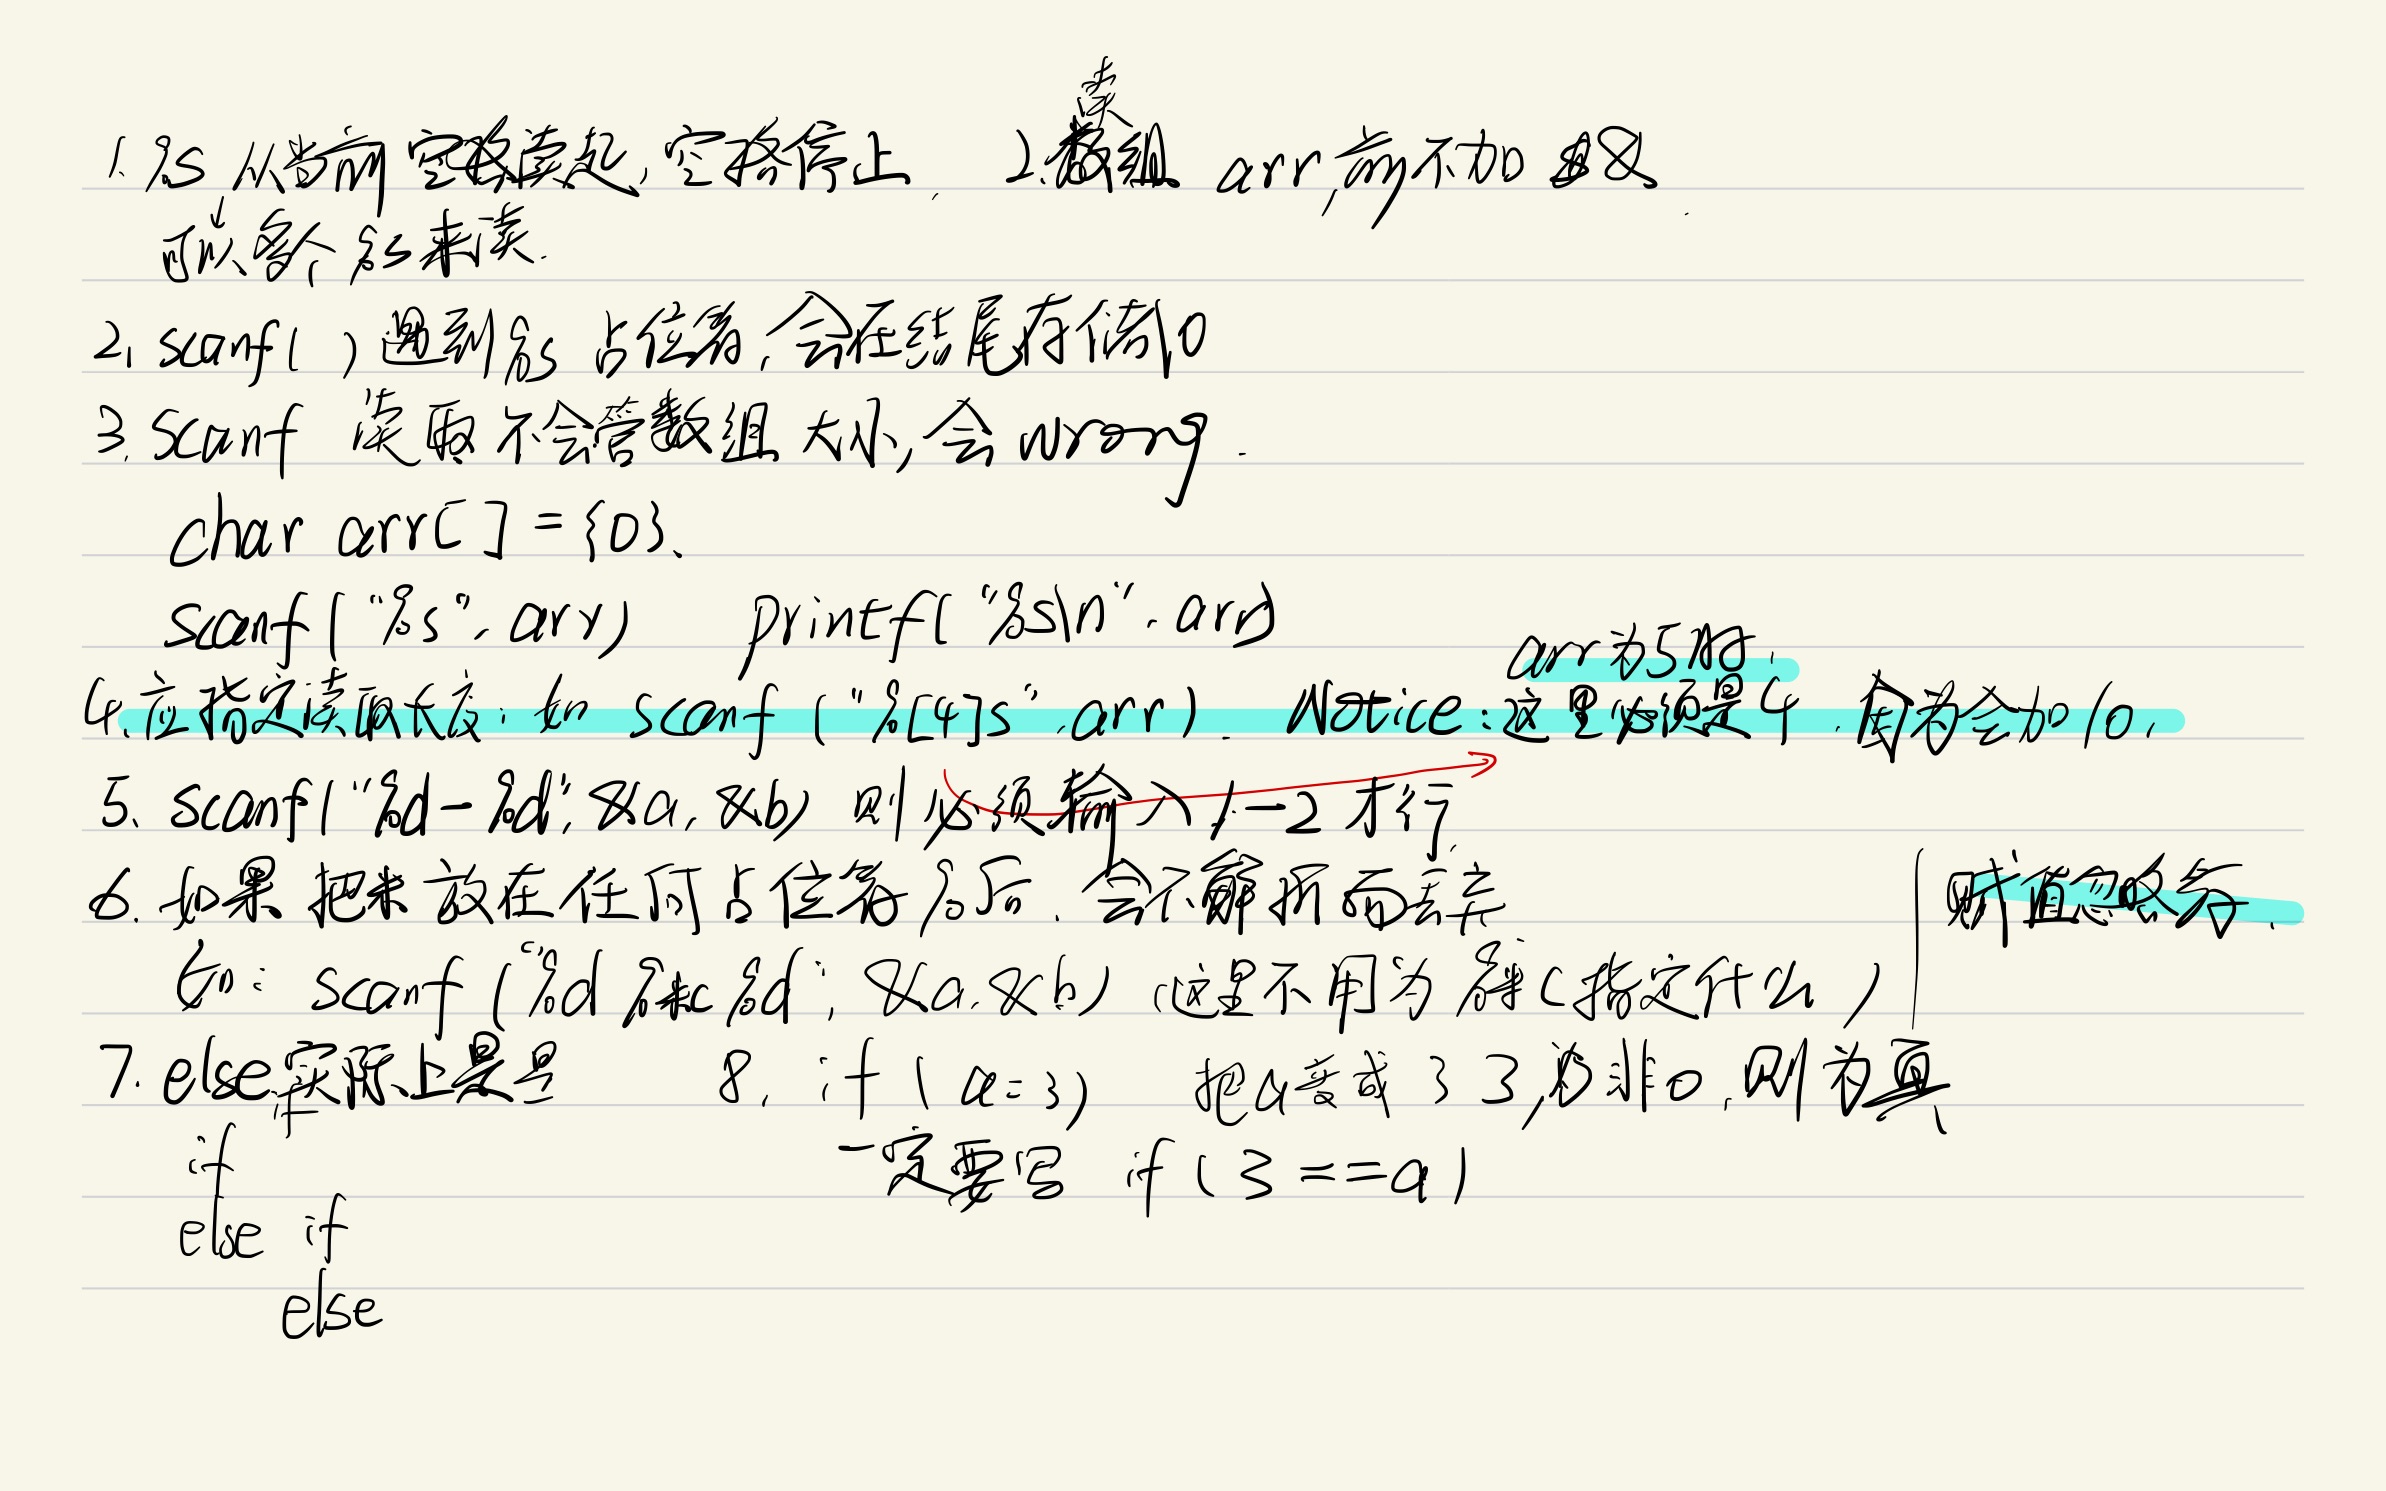 读
1. %s 从当前空格读起，空格停止. 2.数组 arr，前不加 &.
可以多个%s来读.
2. scanf( ) 遇到%s 占位符，会在结尾存储\0
3. scanf 读取不会管数组大小，会 wrong.
char arr[ ] = {0}、
scanf("%s", arr) printf("%s\n", arr)
arr为5时，
4.应指定读取长度：如 scanf ("%[4]s", arr). Notice:这里必须是4，因为会加\0.
5. scanf("%d-%d", &a, &b) 则必须输入 1-2 才行.
6. 如果把* 放在任何占位符%后，会不解析而丢弃 赋值忽略符.
如： scanf ("%d %*c %d", &a, &b) （这里不用为 %*c指定什么）
7. else实际上是 8. if ( a=3) 把a变成3 3，为非0，则为真
if
一定要写 if ( 3 ==a)
else if
else